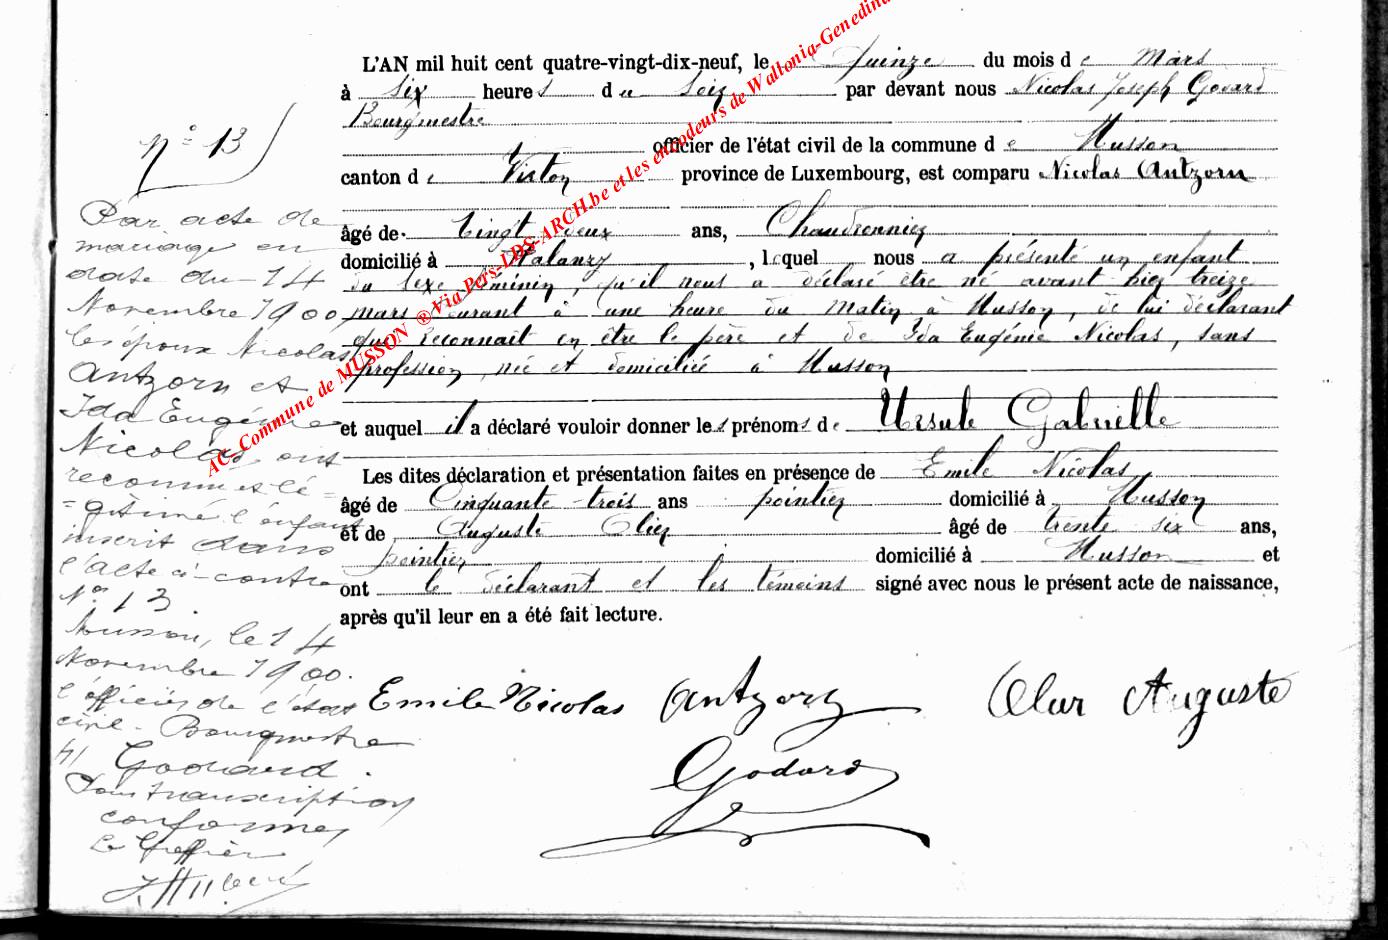 L'AN mil huit cent quatre-vingt-dix-neuf, le quinze du mois de Mars
à six heures du soir par devant nous Nicolas Joseph Godard
Bourgmestre
officier de l'état civil de la commune de Musson
canton de Virton province de Luxembourg, est comparu Nicolas Antzorn
âgé de vingt deux ans, Chaudronnier
domicilié à Halanzy, lequel nous a présenté un enfant
du sexe féminin, qu'il nous a déclaré être né avant hier treize
mars courant à une heure du Matin à Musson, de lui déclarant
qui reconnait en être le père et de Ida Eugénie Nicolas, sans
profession, née et domiciliée à Musson
et auquel il a déclaré vouloir donner les prénoms de Ursule Gabrielle
Les dites déclaration et présentation faites en présence de Emile Nicolas,
âgé de Cinquante-trois ans pointier domicilié à Musson
et de Auguste âgé de trente six ans,
pointier, domicilié à Musson et
ont le déclarant et les témoins signé avec nous le présent acte de naissance,
après qu'il leur en a été fait lecture.
Emile Nicolas Antzorn Auguste
Godard
n° 13
Par acte de
mariage en
date du 14
Novembre 1900
les époux Nicolas
Antzorn et
Ida Eugénie
Nicolas ont
reconnu et lé-
=gitimé l'enfant
inscrit dans
l'acte ci-contre
N° 13.
Musson, le 14
Novembre 1900.
l'officier de l'état
civil - Bourgmestre
Godard.
Pour transcription
conforme,
Le Greffier
AC- Commune de MUSSON ®Via Pers-LDS-ARCH.be et les encodeurs de Wallonia-Genedina